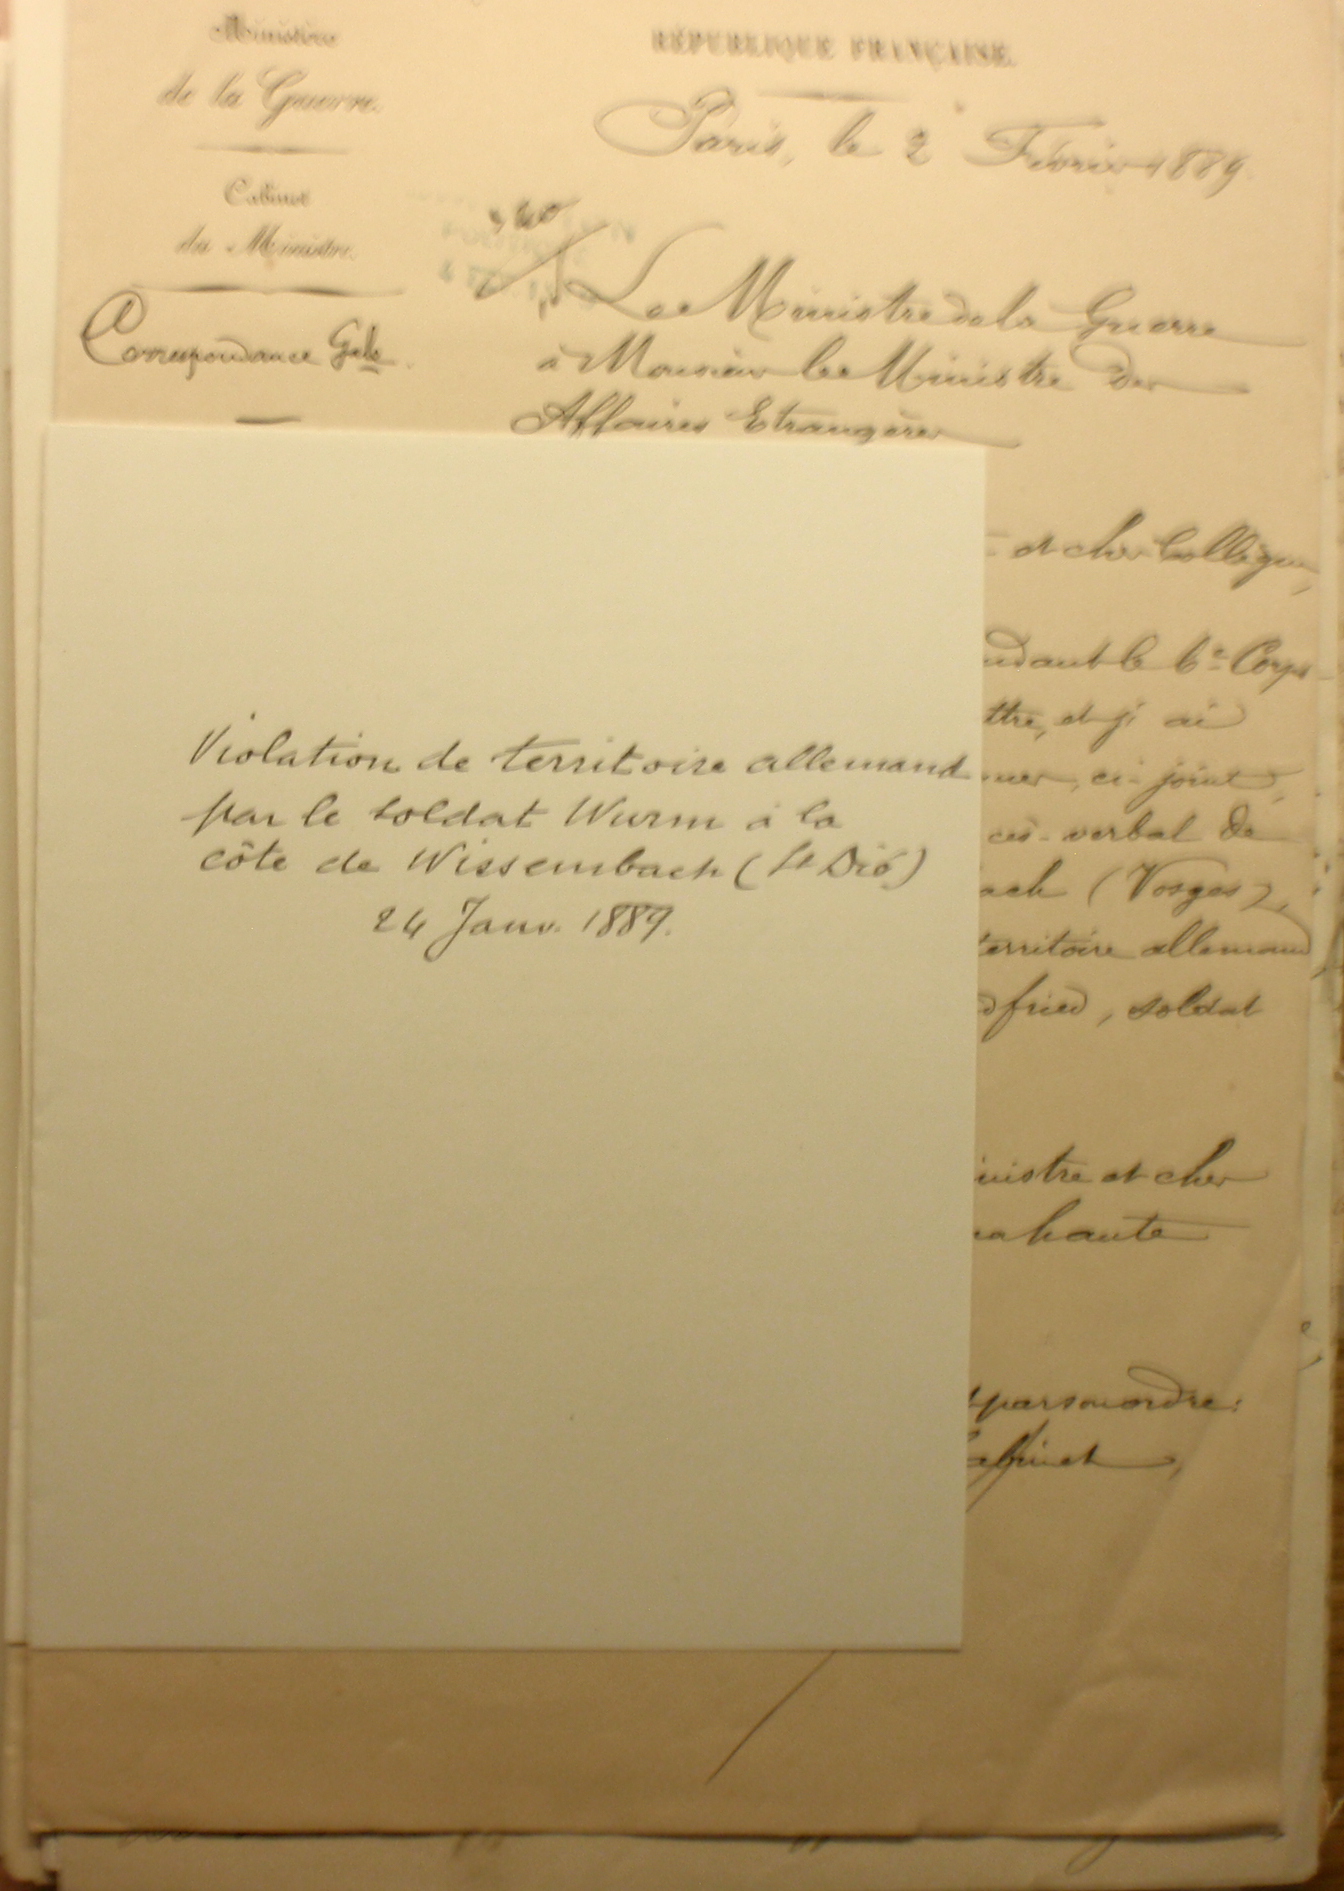 Ministère
de la Guerre.
Cabinet
du Ministre.
Correspondance Gale.
RÉPUBLIQUE FRANÇAISE.
Paris, le 2 Février 1889.
Le Ministre de la Guerre
à Monsieur le Ministre des
Affaires Etrangères
et cher Collègue,
ndant le 6e Corps
ttre, et j'ai
mer, ci-joint,
cès-verbal de
ach (Vosges),
territoire allemand
dfried, soldat
inistre et cher
ma haute
par son ordre:
Cabinet,
Violation de territoire allemand
par le soldat Wurm à la
côte de Wissembach (St Dié)
24 Janv. 1889.